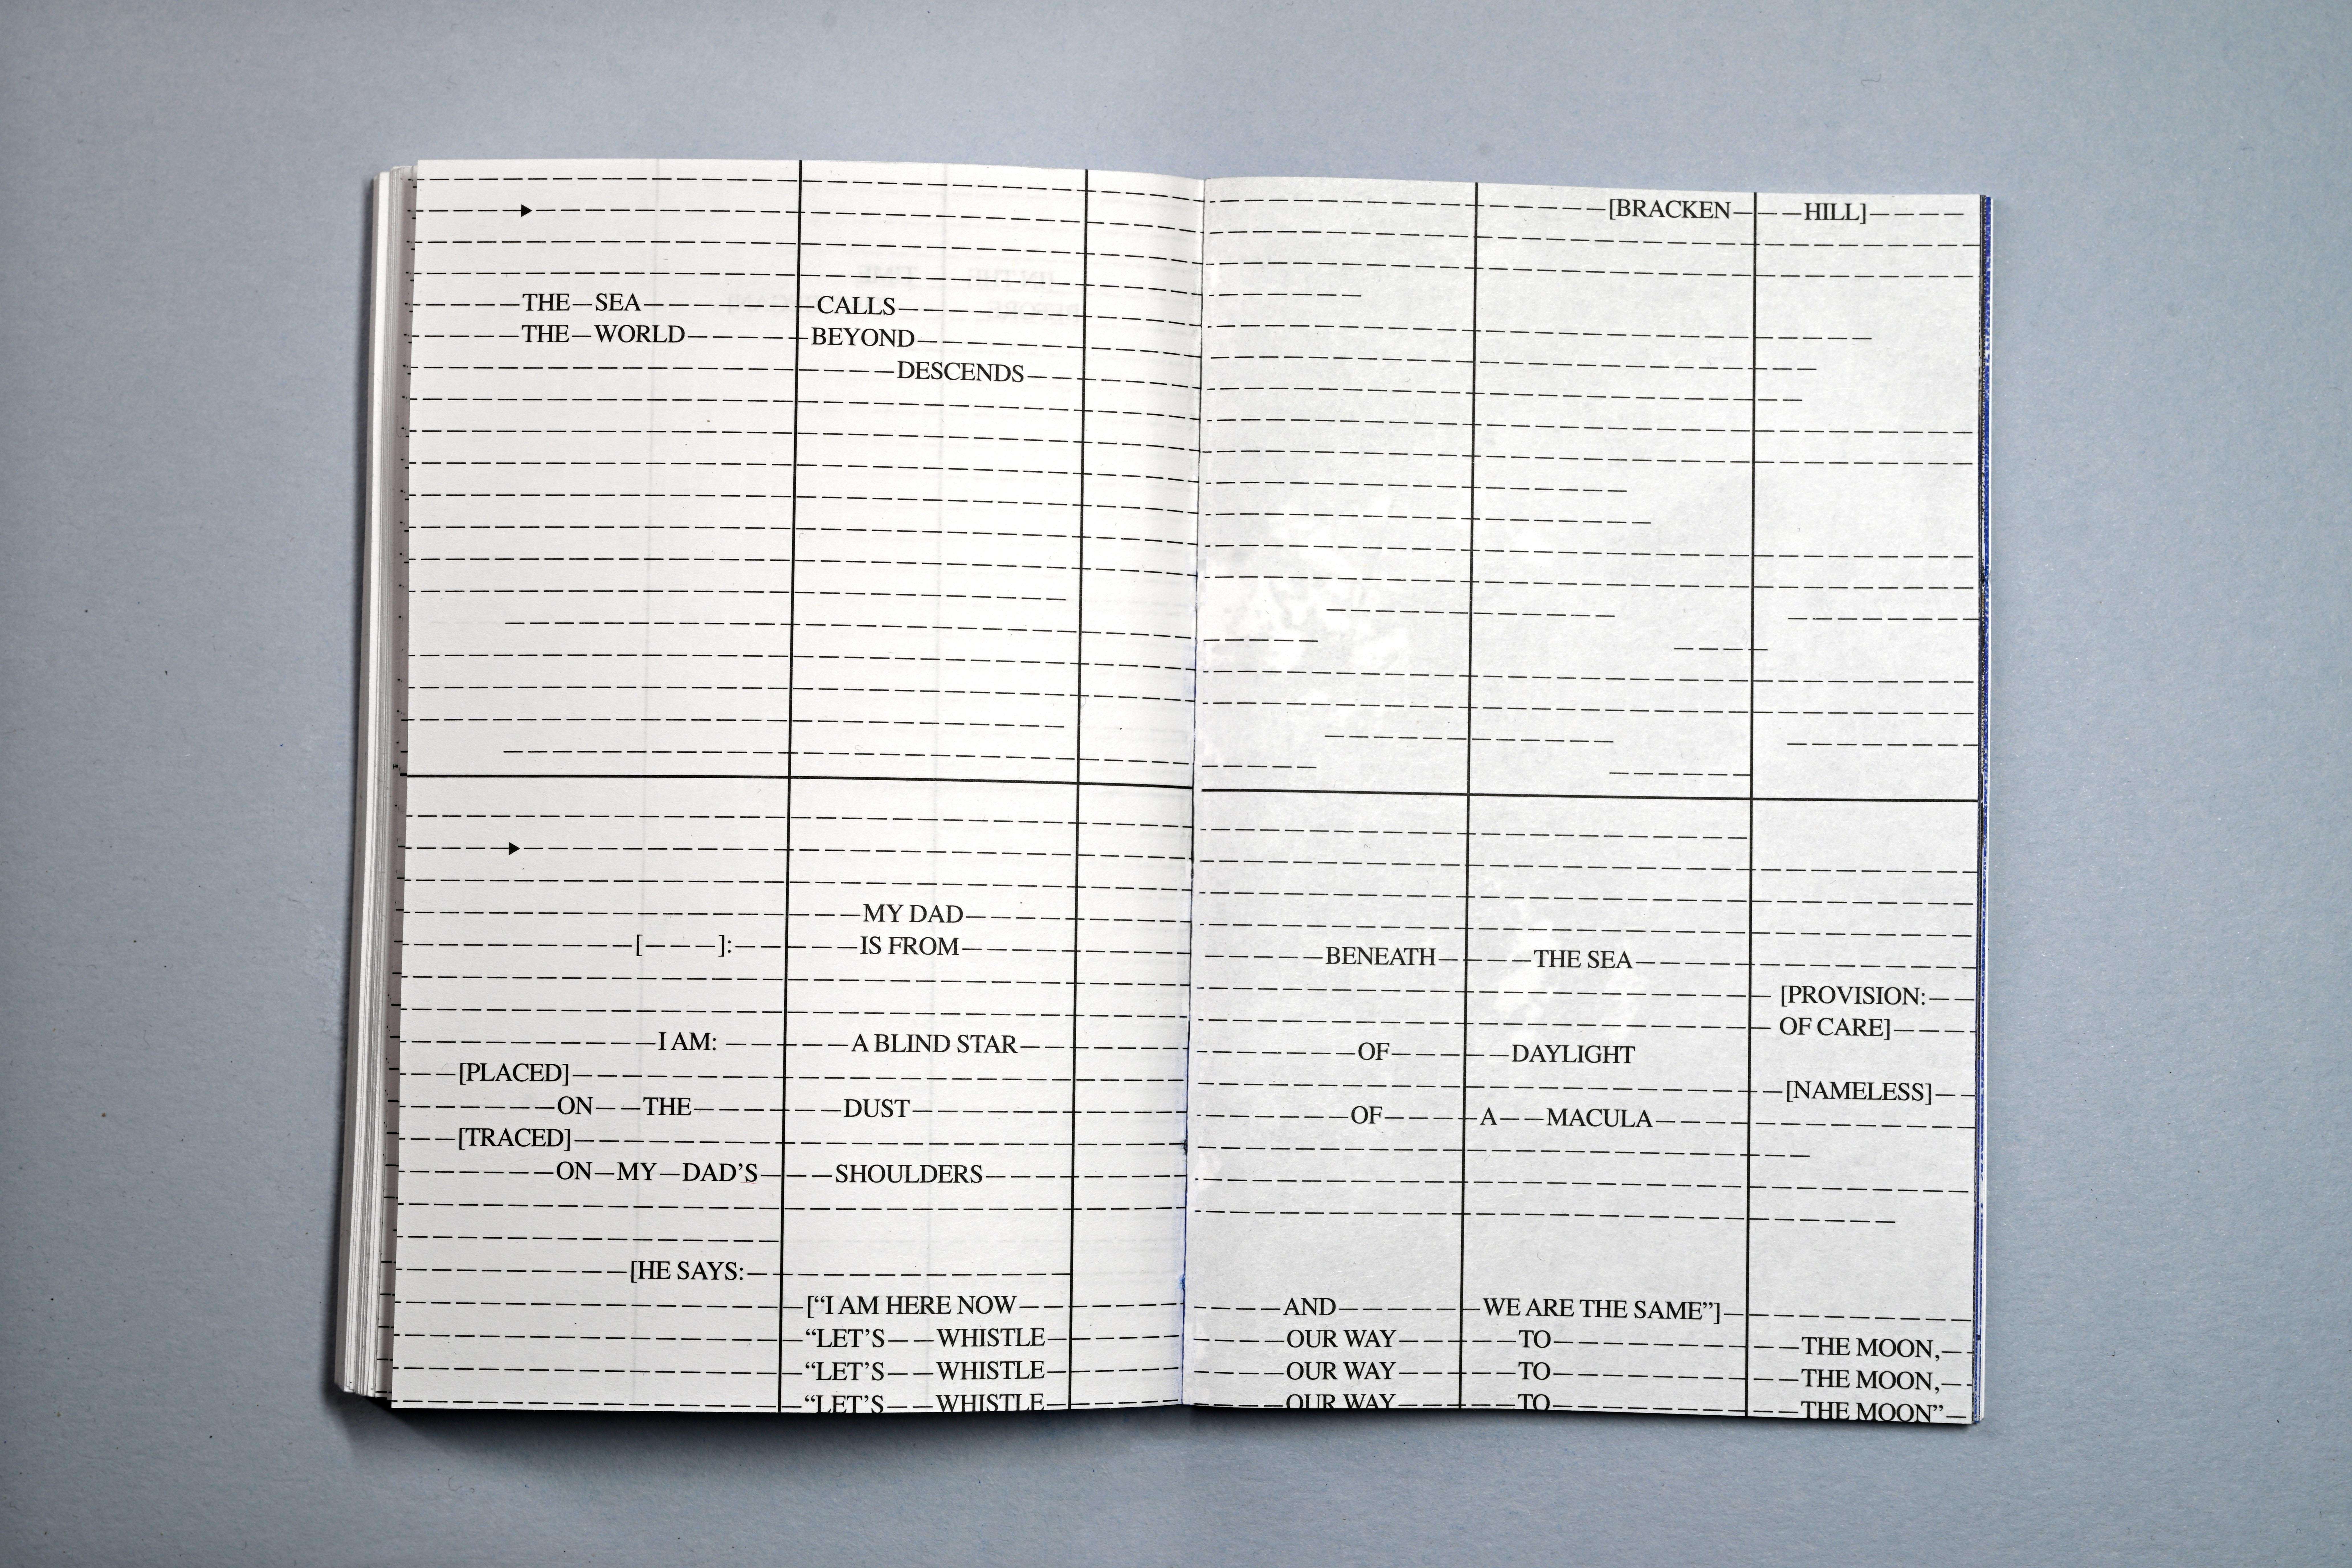 THE—SEA CALLS
THE—WORLD BEYOND
DESCENDS
MY DAD
[———]: IS FROM
I AM: A BLIND STAR
[PLACED]
ON——THE DUST
[TRACED]
ON—MY—DAD’S SHOULDERS
[HE SAYS:
[“I AM HERE NOW
“LET’S——WHISTLE
“LET’S——WHISTLE
“LET’S——WHISTLE
[BRACKEN HILL]
BENEATH THE SEA
[PROVISION:
OF CARE]
OF DAYLIGHT
[NAMELESS]
OF A——MACULA
AND WE ARE THE SAME”]
OUR WAY TO THE MOON,
OUR WAY TO THE MOON,
OUR WAY TO THE MOON”